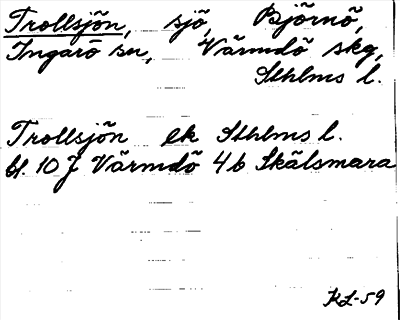 Trollsjön, sjö, Björnö,
Ingarö sn, Värmdö skg,
Sthlms l.
Trollsjön ek Sthlms l.
bl. 10 J Värmdö 4 b Skälsmara
KL-59